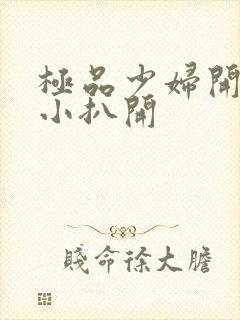 極品少婦開
小扒開
賤命徐大膽